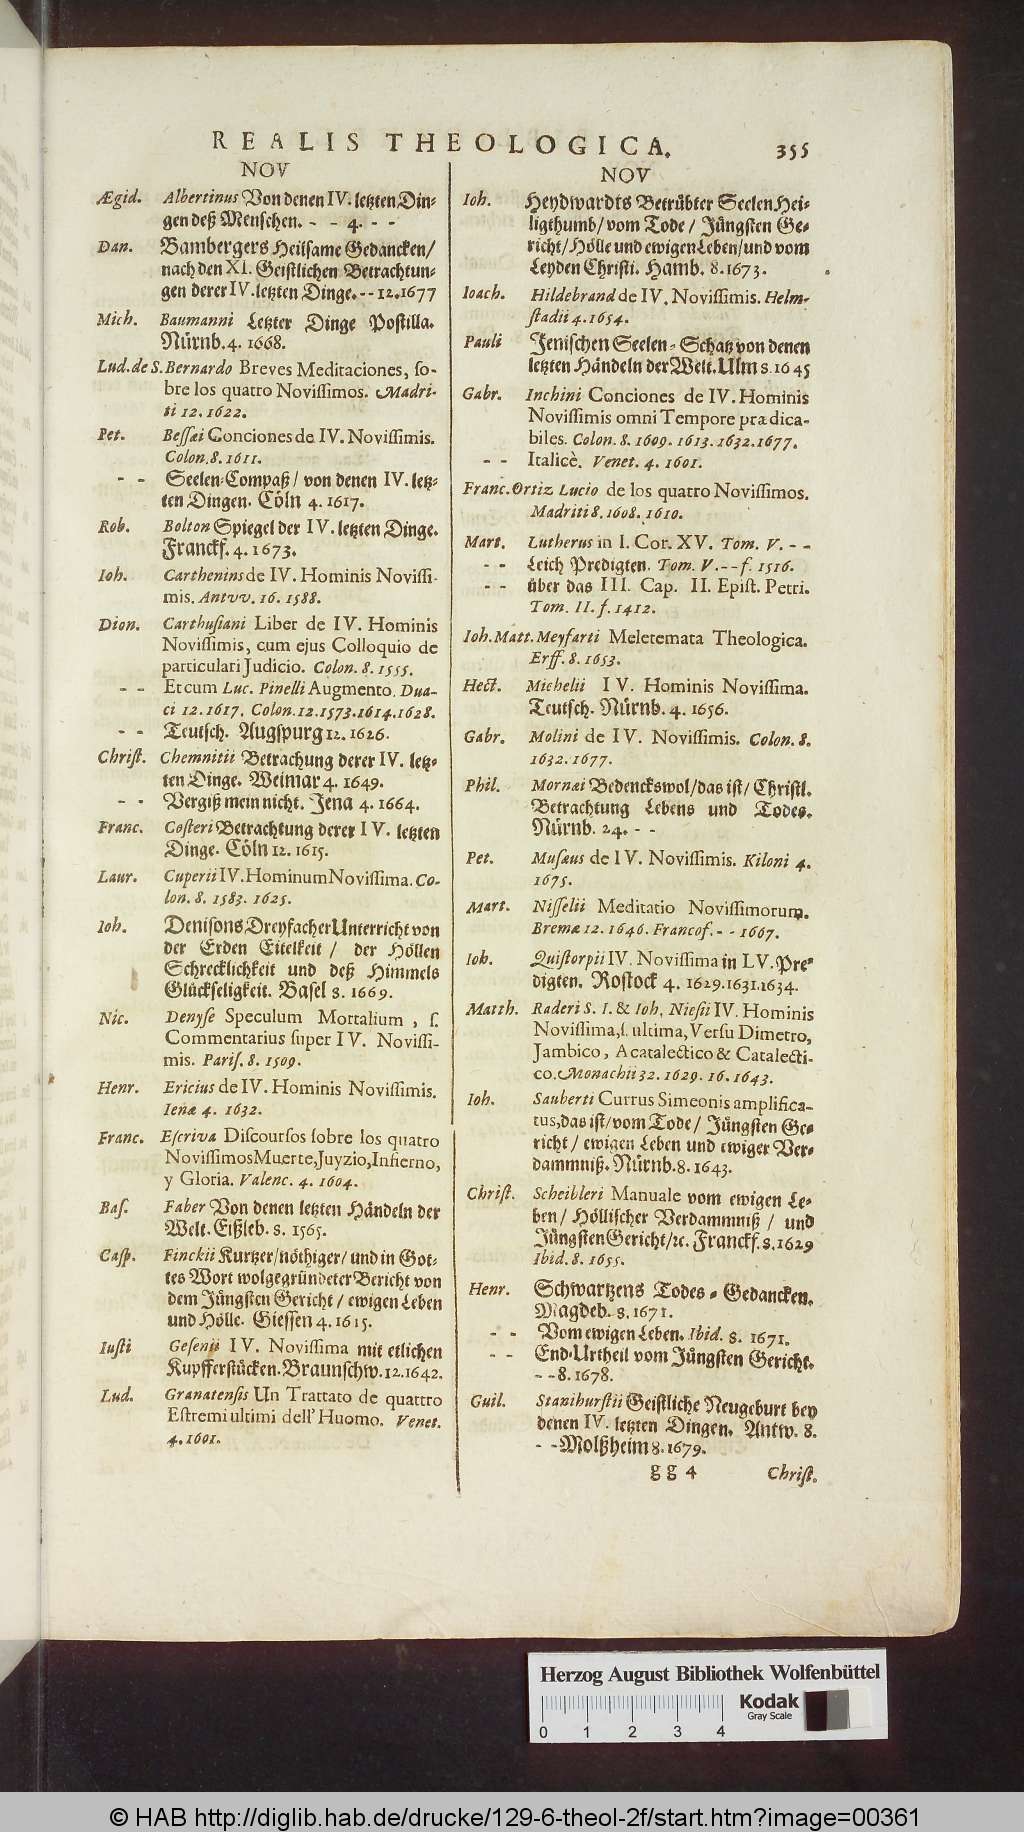 REALIS THEOLOGICA. 355
NOV
Ægid. Albertinus Von denen IV. letzten Din-
gen deß Menschen. - - 4. - -
Dan. Bambergers Heilsame Gedancken/
nach den XI. Geistlichen Betrachtun-
gen derer IV. letzten Dinge. - - 12. 1677
Mich. Baumanni Letzter Dinge Postilla.
Nürnb. 4. 1668.
Lud. de S. Bernardo Breves Meditaciones, so-
bre los quatro Novissimos. Madri-
ti 12. 1622.
Pet. Bessæi Conciones de IV. Novissimis.
Colon. 8. 1611.
- - Seelen-Compaß/ von denen IV. letz-
ten Dingen. Cöln 4. 1617.
Rob. Bolton Spiegel der IV. letzten Dinge.
Franckf. 4. 1673.
Ioh. Carthenins de IV. Hominis Novissi-
mis. Antvv. 16. 1588.
Dion. Carthusiani Liber de IV. Hominis
Novissimis, cum ejus Colloquio de
particulari Judicio. Colon. 8. 1555.
- - Et cum Luc. Pinelli Augmento. Dua-
ci 12. 1617. Colon. 12. 1573. 1614. 1628.
- - Teutsch. Augspurg 12. 1626.
Christ. Chemnitii Betrachung derer IV. letz-
ten Dinge. Weimar 4. 1649.
- - Vergiß mein nicht. Jena 4. 1664.
Franc. Costeri Betrachtung derer IV. letzten
Dinge. Cöln 12. 1615.
Laur. Cuperii IV. Hominum Novissima. Co-
lon. 8. 1583. 1625.
Ioh. Denisons Dreyfacher Unterricht von
der Erden Eitelkeit / der Höllen
Schrecklichkeit und deß Himmels
Glückseligkeit. Basel 8. 1669.
Nic. Denyse Speculum Mortalium, s.
Commentarius super IV. Novissi-
mis. Paris. 8. 1509.
Henr. Ericius de IV. Hominis Novissimis.
Ienæ 4. 1632.
Franc. Escriva Discoursos sobre los quatro
Novissimos Muerte, Juyzio, Infierno,
y Gloria. Valenc. 4. 1604.
Bas. Faber Von denen letzten Händeln der
Welt. Eißleb. 8. 1565.
Casp. Finckii Kurtzer/ nöthiger/ und in Got-
tes Wort wolgegründeter Bericht von
dem Jüngsten Gericht / ewigen Leben
und Hölle. Giessen 4. 1615.
Iusti Gesenii IV. Novissima mit etlichen
Kupfferstücken. Braunschw. 12. 1642.
Lud. Granatensis Un Trattato de quattro
Estremi ultimi dell' Huomo. Venet.
4. 1601.
NOV
Ioh. Heydwardts Betrübter Seelen Hei-
ligthumb/ vom Tode / Jüngsten Ge-
richt/ Hölle und ewigen Leben/ und vom
Leyden Christi. Hamb. 8. 1673.
Ioach. Hildebrand de IV. Novissimis. Helm-
stadii 4. 1654.
Pauli Jenischen Seelen-Schatz von denen
letzten Händeln der Welt. Ulm 8. 1645
Gabr. Inchini Conciones de IV. Hominis
Novissimis omni Tempore prædica-
biles. Colon. 8. 1609. 1613. 1632. 1677.
- - Italicè. Venet. 4. 1601.
Franc. Ortiz Lucio de los quatro Novissimos.
Madriti 8. 1608. 1610.
Mart. Lutherus in I. Cor. XV. Tom. V. - -
- - Leich Predigten. Tom. V. - - f. 1516.
- - über das III. Cap. II. Epist. Petri.
Tom. II. f. 1412.
Ioh. Matt. Meyfarti Meletemata Theologica.
Erff. 8. 1653.
Hect. Michelii IV. Hominis Novissima.
Teutsch. Nürnb. 4. 1656.
Gabr. Molini de IV. Novissimis. Colon. 8.
1632. 1677.
Phil. Mornæi Bedenckswol/ das ist/ Christl.
Betrachtung Lebens und Todes.
Nürnb. 24. - -
Pet. Musæus de IV. Novissimis. Kiloni 4.
1675.
Mart. Nisselii Meditatio Novissimorum.
Bremæ 12. 1646. Francof. - - 1667.
Ioh. Quistorpii IV. Novissima in LV. Pre-
digten. Rostock 4. 1629. 1631. 1634.
Matth. Raderi S. I. & Ioh. Niesii IV. Hominis
Novissima, s. ultima, Versu Dimetro,
Jambico, Acatalectico & Catalecti-
co. Monachii 32. 1629. 16. 1643.
Ioh. Sauberti Currus Simeonis amplifica-
tus, das ist/ vom Tode / Jüngsten Ge-
richt / ewigen Leben und ewiger Ver-
dammniß. Nürnb. 8. 1643.
Christ. Scheibleri Manuale vom ewigen Le-
ben / Höllischer Verdammniß / und
Jüngsten Gericht/ ꝛc. Franckf. 8. 1629
Ibid. 8. 1655.
Henr. Schwartzens Todes-Gedancken.
Magdeb. 8. 1671.
- - Vom ewigen Leben. Ibid. 8. 1671.
- - End-Urtheil vom Jüngsten Gericht.
- - 8. 1678.
Guil. Stanihurstii Geistliche Neugeburt bey
denen IV. letzten Dingen. Antw. 8.
- - Molßheim 8. 1679.
gg 4 Christ.
Herzog August Bibliothek Wolfenbüttel
Kodak
Gray Scale
0 1 2 3 4
© HAB http://diglib.hab.de/drucke/129-6-theol-2f/start.htm?image=00361